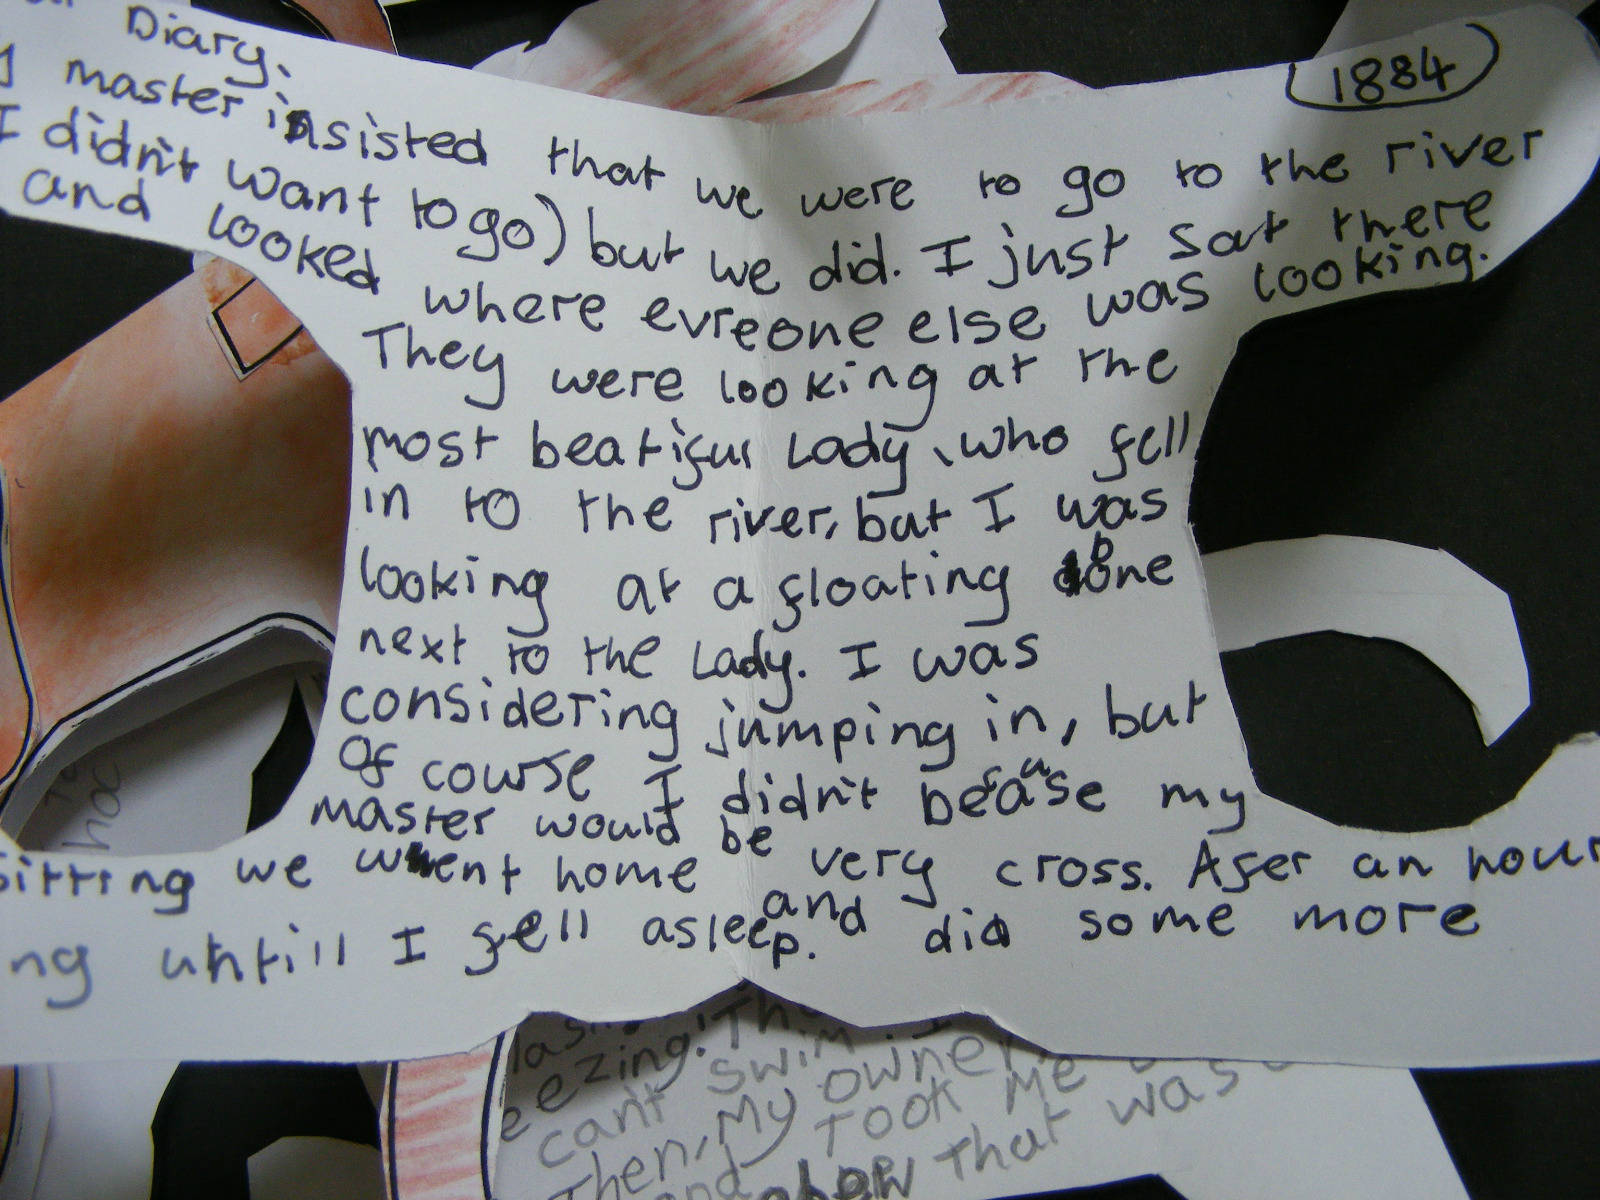 Diary.
1884
master insisted that we were to go to the river
I didn't want to go) but we did. I just sat there
and looked where evreone else was looking.
They were looking at the
most beatiful Lady, who fell
in to the river, but I was
looking at a floating bone
next to the Lady. I was
considering jumping in, but
of course I didn't becauase my
master would be very cross. Afer an hour
sitting we went home and did some more
ng untill I fell asleep.
eezing! Th
can't swim. I
Then, my owner
Took me
and that was